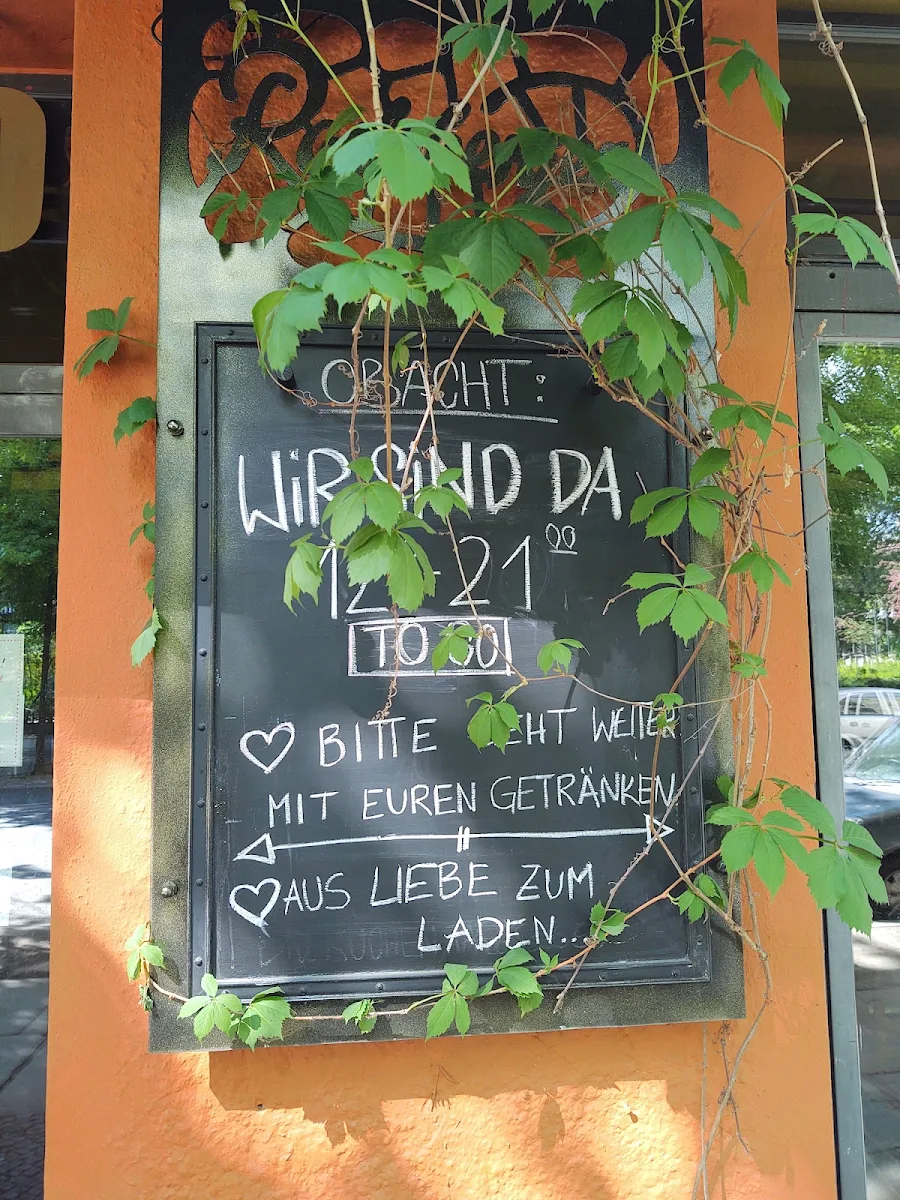 OBACHT:
WiR SiND DA
12-21⁰⁰
TO GO
♡ BITTE GEHT WEITER
MIT EUREN GETRÄNKEN
♡ AUS LIEBE ZUM
LADEN...